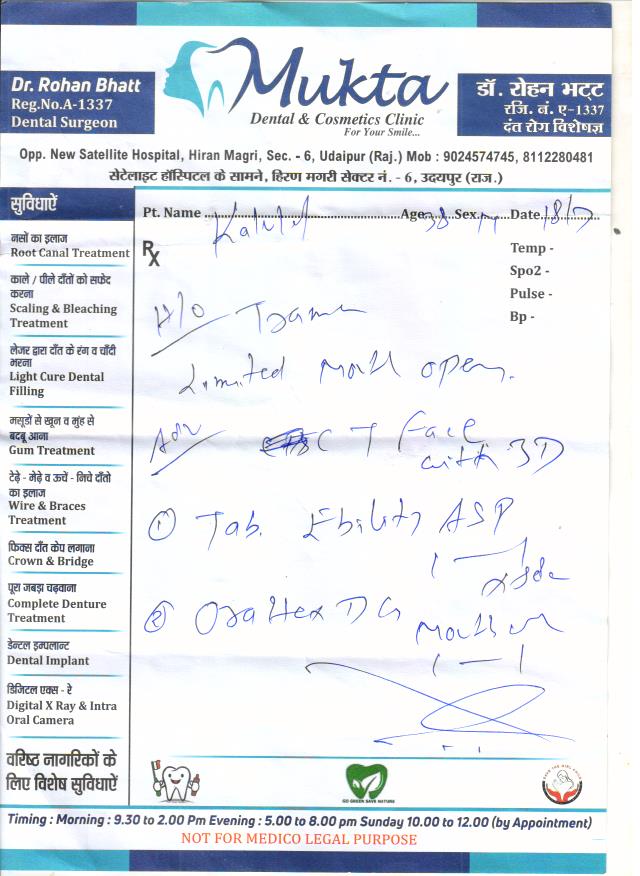 Dr. Rohan Bhatt
Reg.No.A-1337
Dental Surgeon
Mukta
Dental & Cosmetics Clinic
For Your Smile...
डॉ. रोहन भट्ट
रजि. नं. ए-1337
दंत रोग विशेषज्ञ
Opp. New Satellite Hospital, Hiran Magri, Sec. - 6, Udaipur (Raj.) Mob : 9024574745, 8112280481
सेटेलाइट हॉस्पिटल के सामने, हिरण मगरी सेक्टर नं. - 6, उदयपुर (राज.)
Pt. Name Age 38 Sex M Date 18/7
Rx
Temp -
Spo2 -
Pulse -
Bp -
H/O
Limited Mouth open.
Adv CT Face
with 3D
① Tab. ASP
1 — 1
② DG
1 — 1
सुविधाऐं
नसों का इलाज
Root Canal Treatment
काले / पीले दाँतों को सफेद
करना
Scaling & Bleaching
Treatment
लेजर द्वारा दाँत के रंग व चाँदी
भरना
Light Cure Dental
Filling
मसूडों से खून व मुंह से
बदबू आना
Gum Treatment
टेढ़े - मेढ़े व ऊचें - निचे दाँतो
का इलाज
Wire & Braces
Treatment
फिक्स दाँत केप लगाना
Crown & Bridge
पूरा जबड़ा चढ़वाना
Complete Denture
Treatment
डेन्टल इम्पलान्ट
Dental Implant
डिजिटल एक्स - रे
Digital X Ray & Intra
Oral Camera
वरिष्ट नागरिकों के
लिए विशेष सुविधाऐं
GO GREEN SAVE NATURE
SAVE THE GIRL CHILD
Timing : Morning : 9.30 to 2.00 Pm Evening : 5.00 to 8.00 pm Sunday 10.00 to 12.00 (by Appointment)
NOT FOR MEDICO LEGAL PURPOSE